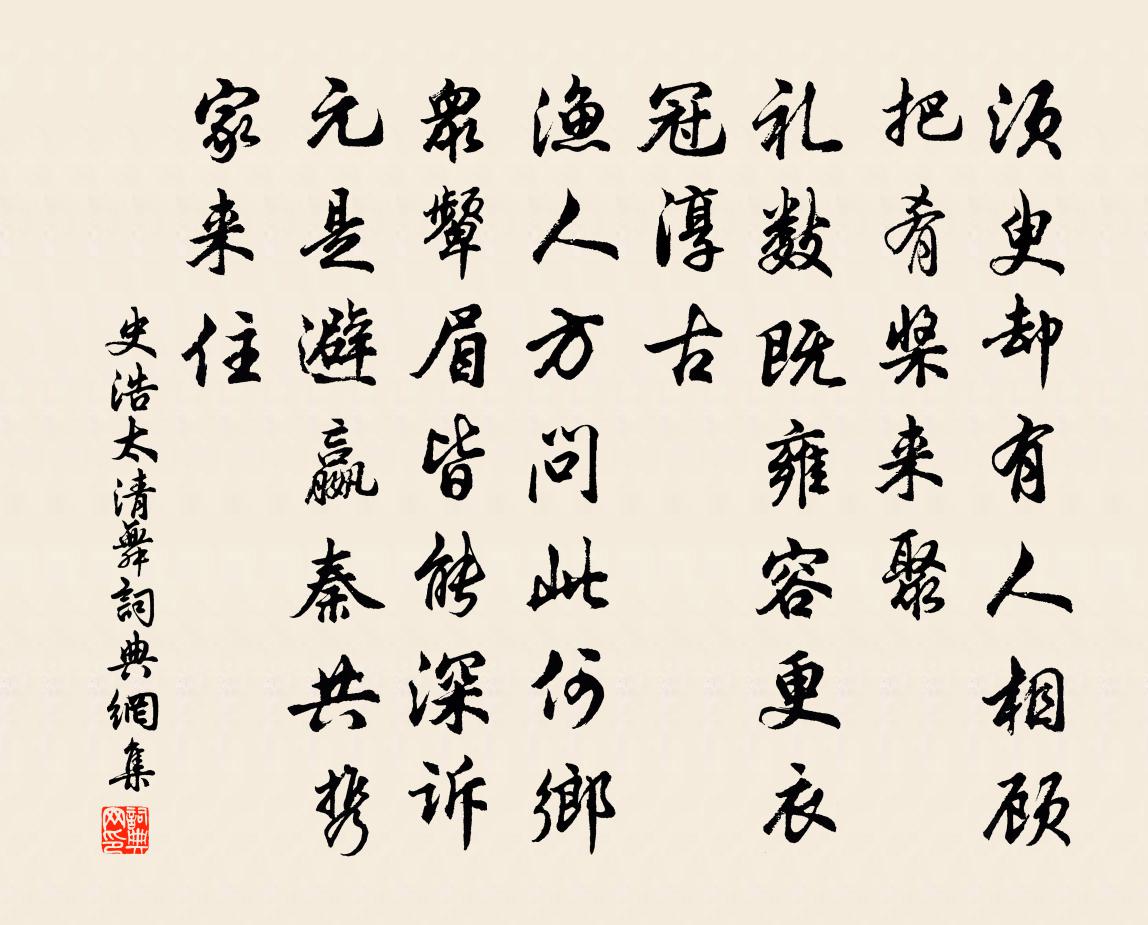 须臾却有人相顾
把肴桨来聚
礼数既雍容更衣
冠淳古
渔人方问此何乡
众颦眉皆能深诉
元是避嬴秦共携
家来住
史浩太清舞詞典網集
詞典网印